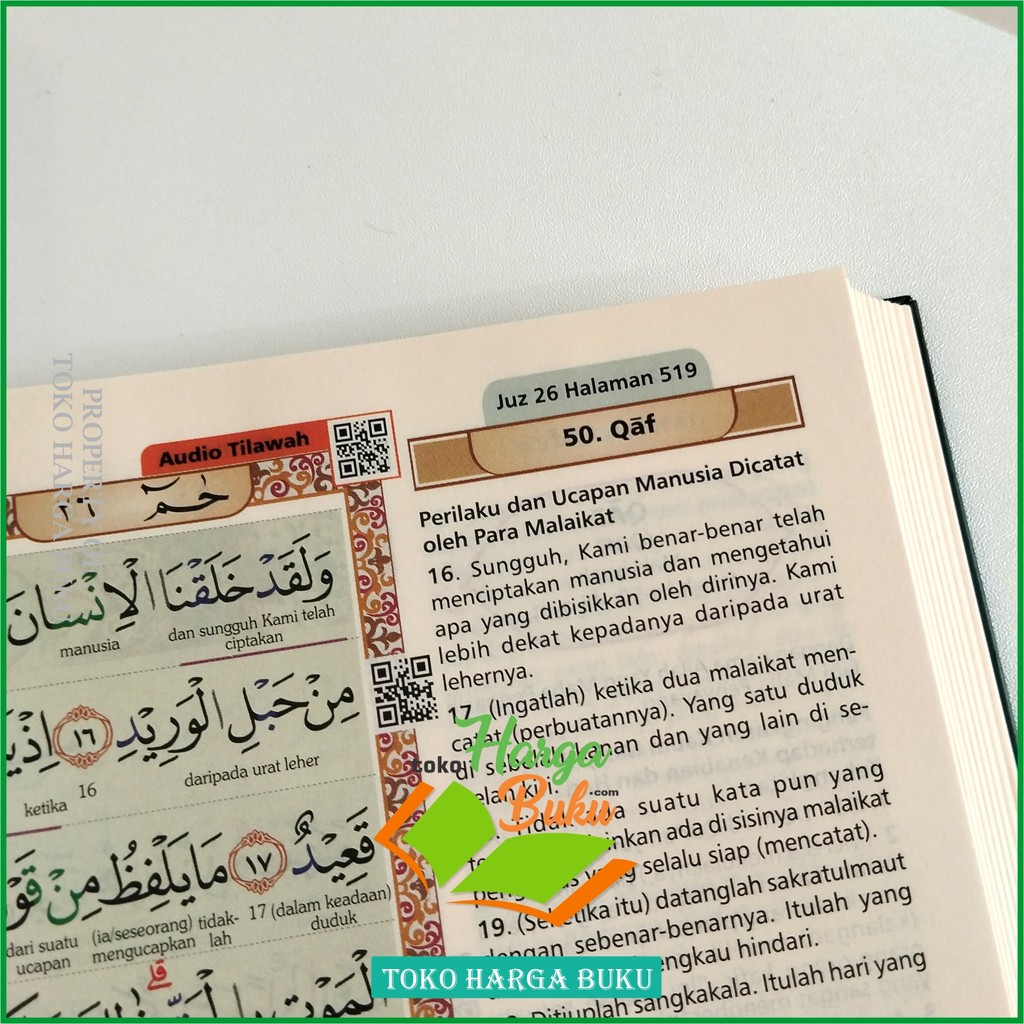 Juz 26 Halaman 519
Audio Tilawah
50. Qāf
٢٦ حٰمۤ
Perilaku dan Ucapan Manusia Dicatat
oleh Para Malaikat
16. Sungguh, Kami benar-benar telah
menciptakan manusia dan mengetahui
apa yang dibisikkan oleh dirinya. Kami
lebih dekat kepadanya daripada urat
lehernya.
17. (Ingatlah) ketika dua malaikat men-
catat (perbuatannya). Yang satu duduk
di sebelah kanan dan yang lain di se-
belah kiri.
suatu kata pun yang
ada di sisinya malaikat
yang selalu siap (mencatat).
19. (Seketika itu) datanglah sakratulmaut
dengan sebenar-benarnya. Itulah yang
engkau hindari.
Ditiuplah sangkakala. Itulah hari yang
وَلَقَدْ خَلَقْنَا الْاِنْسَانَ
dan sungguh Kami telah ciptakan
manusia
مِنْ حَبْلِ الْوَرِيْدِ ١٦
daripada urat leher
16
ketika
قَعِيْدٌ ١٧ مَا يَلْفِظُ مِنْ
(dalam keadaan) duduk
17
tidak-lah
(ia/seseorang) mengucapkan
dari suatu ucapan
الْمَوْتِ
PROPERTY OF
TOKO HARGA
toko
Harga
Buku
.com
TOKO HARGA BUKU